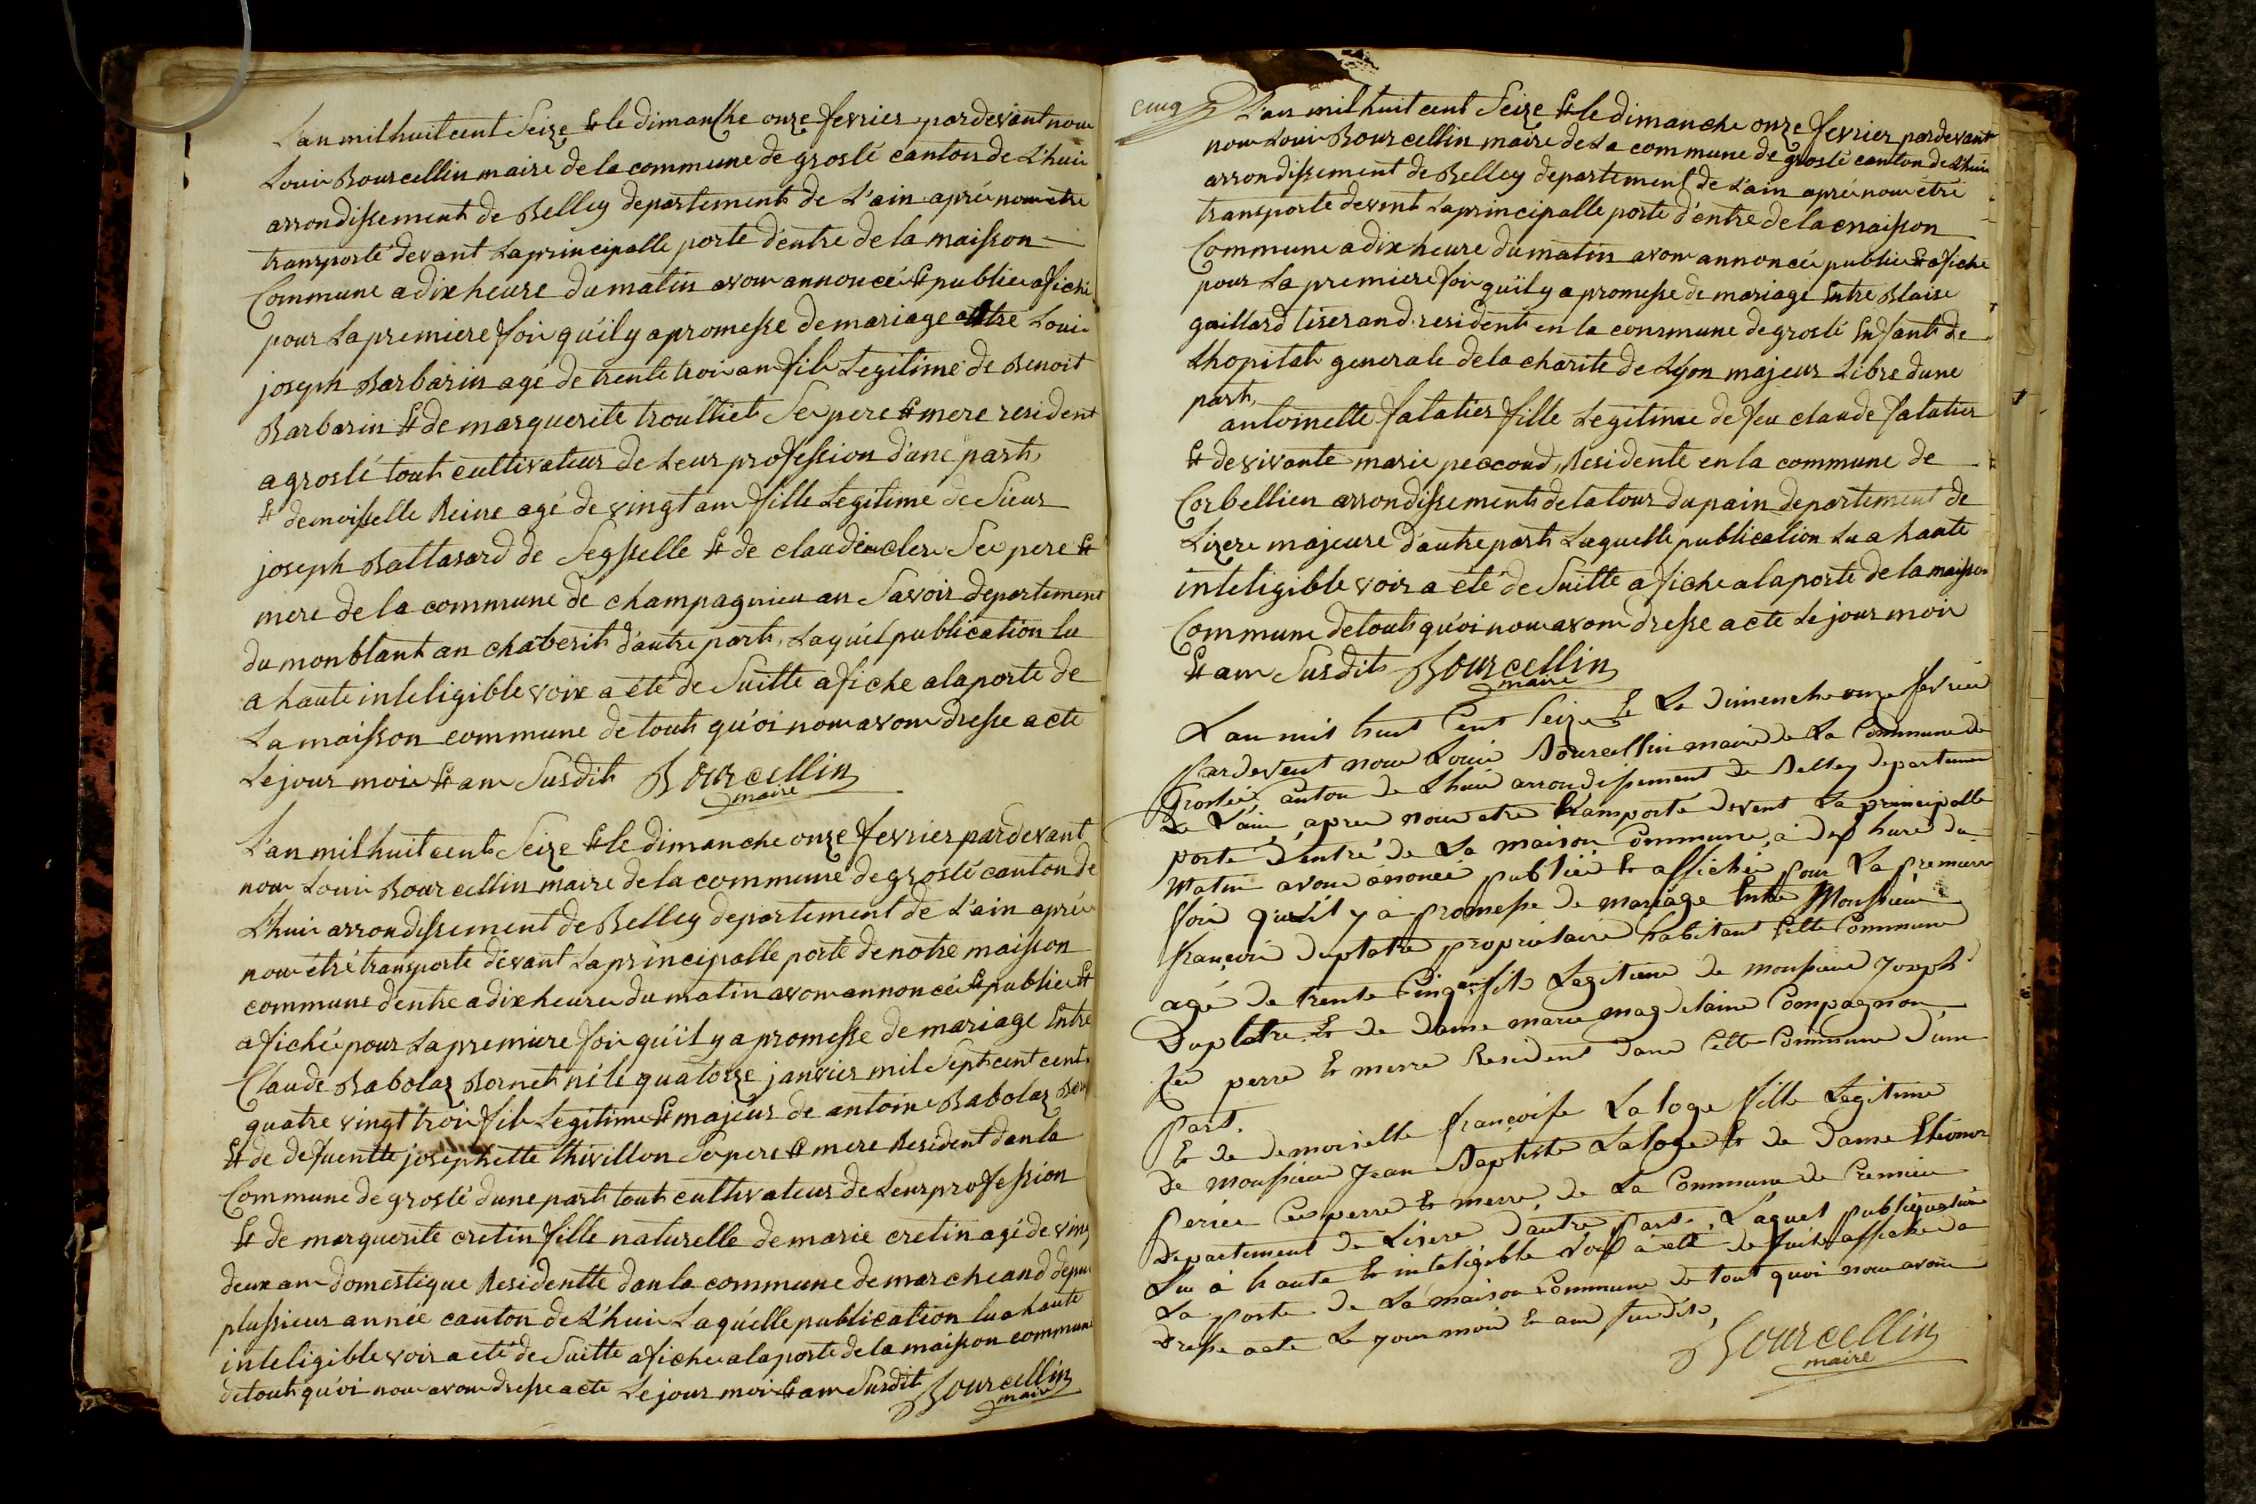 L'an mil huit cent Seize & le dimanche onze fevrier pardevant nous
Louis Bourcellin maire de la commune de groslé canton de L'huis
arrondissement de Belley departement de L'ain aprés nous etre
transporté devant La principalle porte d'entre de la maisson
Commune a dix heure du matin avons annoncé & publie afiché
pour La premiere fois qu'il y a promesse de mariage entre Louis
joseph Barbarin agé de trente trois ans fils Legitime de Benoit
Barbarin & de marguerite troulliet Ses pere & mere resident
a groslé touts cultivateur de Leur profession d'une part,
& demoisselle Reine agé de vingt ans fille Legitime de Sieur
joseph Ballasard de Seysselle & de claudine clere Ses pere &
mere de la commune de champagnieu an Savoir departement
du monblant an chaberit d'autre part, Laquel publication lu
a haute inteligible voix a été de Suitte afiche a la porte de
La maisson commune de touts qu'oi nous avons dresse acte
Le jour mois & ans Susdits Bourcellin
maire
L'an mil huit cents Seize & le dimanche onze fevrier pardevant
nous Louis Bourcellin maire de la commune de groslé canton de
L'huis arrondissement de Belley departement de L'ain aprés
nous étré transporte devant La principalle porte de notre maisson
commune d'entre a dix heures du matin avons annoncé & publie &
afiché pour La premiere fois qu'il y a promesse de mariage Entre
Claude Rabolaz Bornet né le quatorze janvier mil Sept cent cents
quatre vingt trois fils Legitime & majeur de antoine Rabolaz Bor
& de defuentte josephette thivillon Ses pere & mere Resident dans la
Commune de groslé d'une part touts cultivateur de Leur profession
& de marguerite cretin fille naturelle de marie cretin agé de vin
deux ans domestique Residentte dans la commune de marcheand depui
plussieur année canton de L'huis Laquelle publication lu a haute
inteligible voix a eté de Suitte afiche a la porte de la maisson commune
de touts qu'oi nous avons dresse acte Le jour mois & ans Susdit Bourcellin
maire
cinq
L'an mil huit cent Seize & le dimanche onze fevrier pardevant
nous Louis Bourcellin maire de La commune de groslé canton de L'huis
arrondissement de Belley departement de L'ain aprés nous etré
transporte devent La principalle porte d'entre de la maisson
Commune a dix heure du matin avons annoncée publie & afiche
pour La premiere fois qu'il y a promesse de mariage Entre Blaise
gaillard tiserand resident en la commune de groslé Enfant de
L'hopitals generale de la charite de Lyon majeur Libre d'une
part,
antoinette falatier fille Legitime de feu claude falatier
& de vivante marie peccoud, Residente en la commune de
Corbellieu arrondissements de la tour du pain departement de
Lizere majeure d'autre part Laquelle publication Lu a haute
inteligible voix a été de Suitte afiche a la porte de la maisson
Commune de touts qu'oi nous avons dresse acte Le jour mois
& ans Susdits Bourcellin
maire
L'an mil huit Cent Seize & Le Dimenche onze fevrier
Pardevent nous Louis Bourcellin maire de La Commune de
Groslée Canton de Lhuis arrondissement de Belley departement
De L'ain, apres nous etre transporté devent La principalle
porte d'entré de La maison Commune, a dix hure du
Matin avons ánoncé publiée & affichée pour La premiere
fois qu'il y à promesse de mariage Entre Monssieur
françois Duplatre propriétaire habitant Cette Commune
agé de trente Cinq ans fils Legitime de monssieur Joseph
Duplatre & de dame marie magdelaine Compagnon
Ses perre & merre Resident dans Cette Commune D'une
Part.
& de demoiselle françoise Laloge fille Legitime
De monssieur Jean Baptiste Laloge & de Dame Eleonor
Perier Ses perre & merre de La Commune de Cremieu
Departement de Lisere D'autre Part. Laquel publiquation
Lu à haute & inteligible Voix à été de suite affichée a
La porte de La maison Commune de tout quoi nous avons
Dresse acte Le jour mois & ans susdits,
Bourcellin
maire